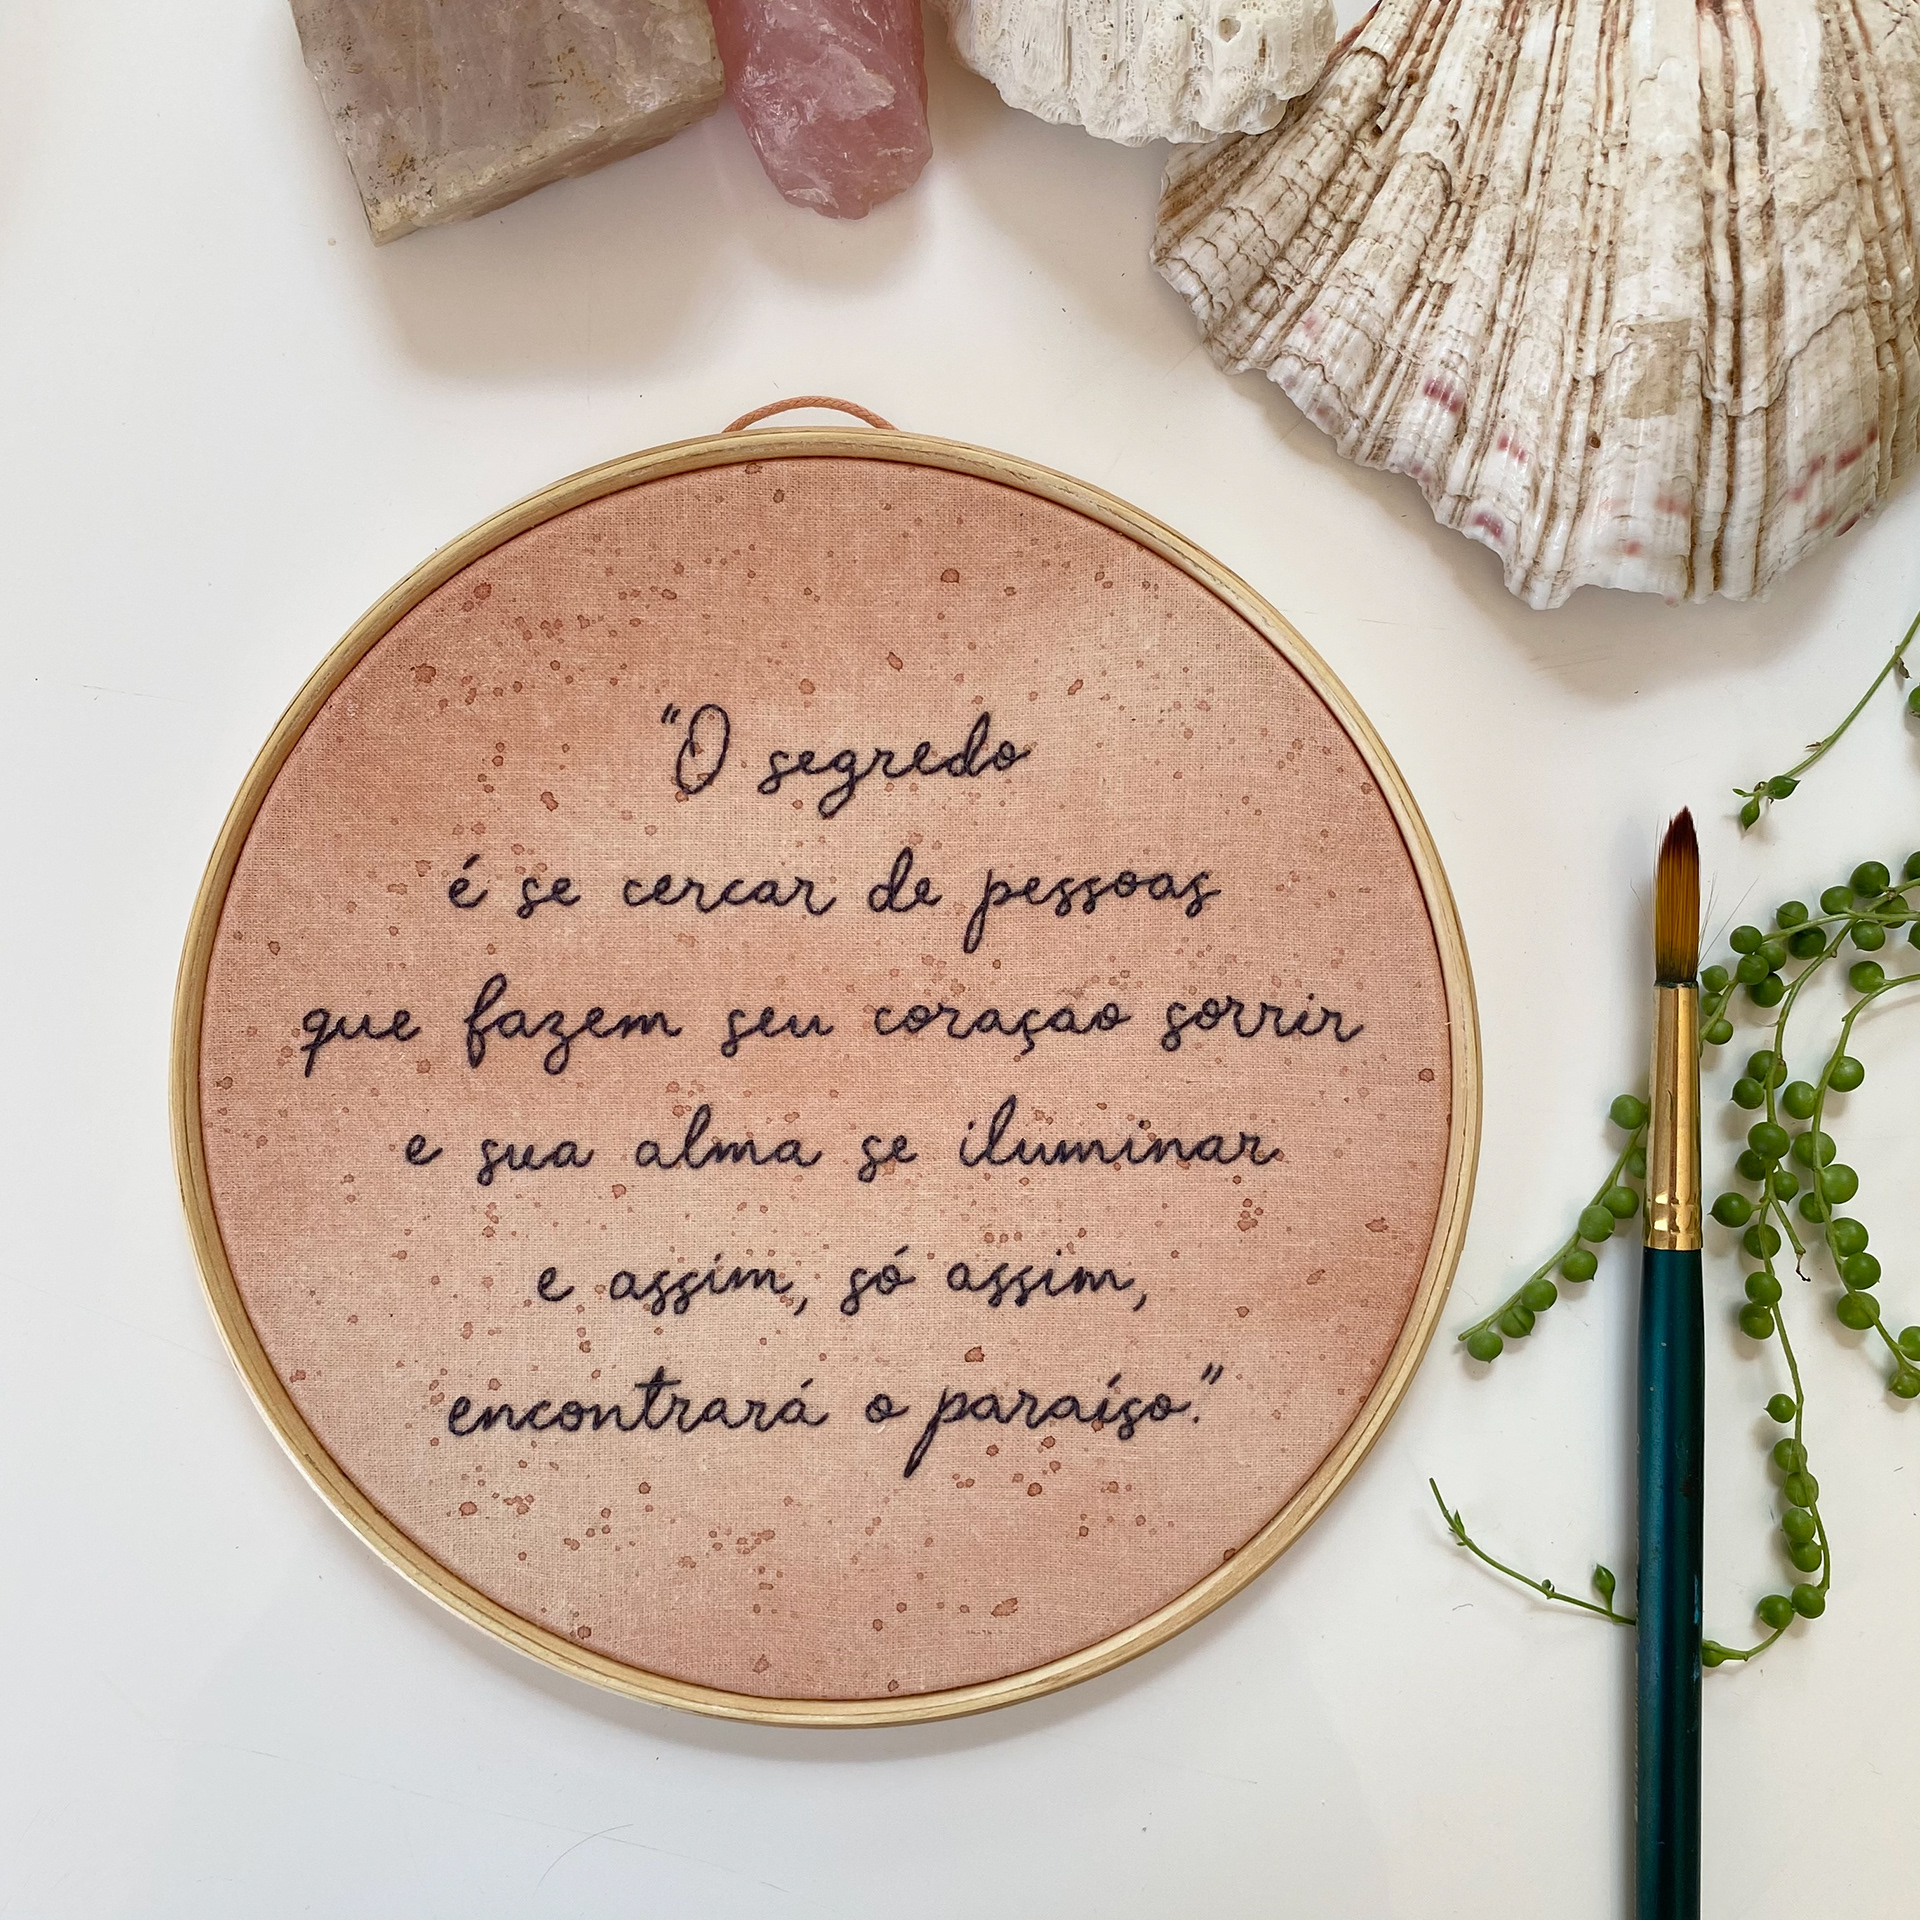 "O segredo
é se cercar de pessoas
que fazem seu coração sorrir
e sua alma se iluminar
e assim, só assim,
encontrará o paraíso."